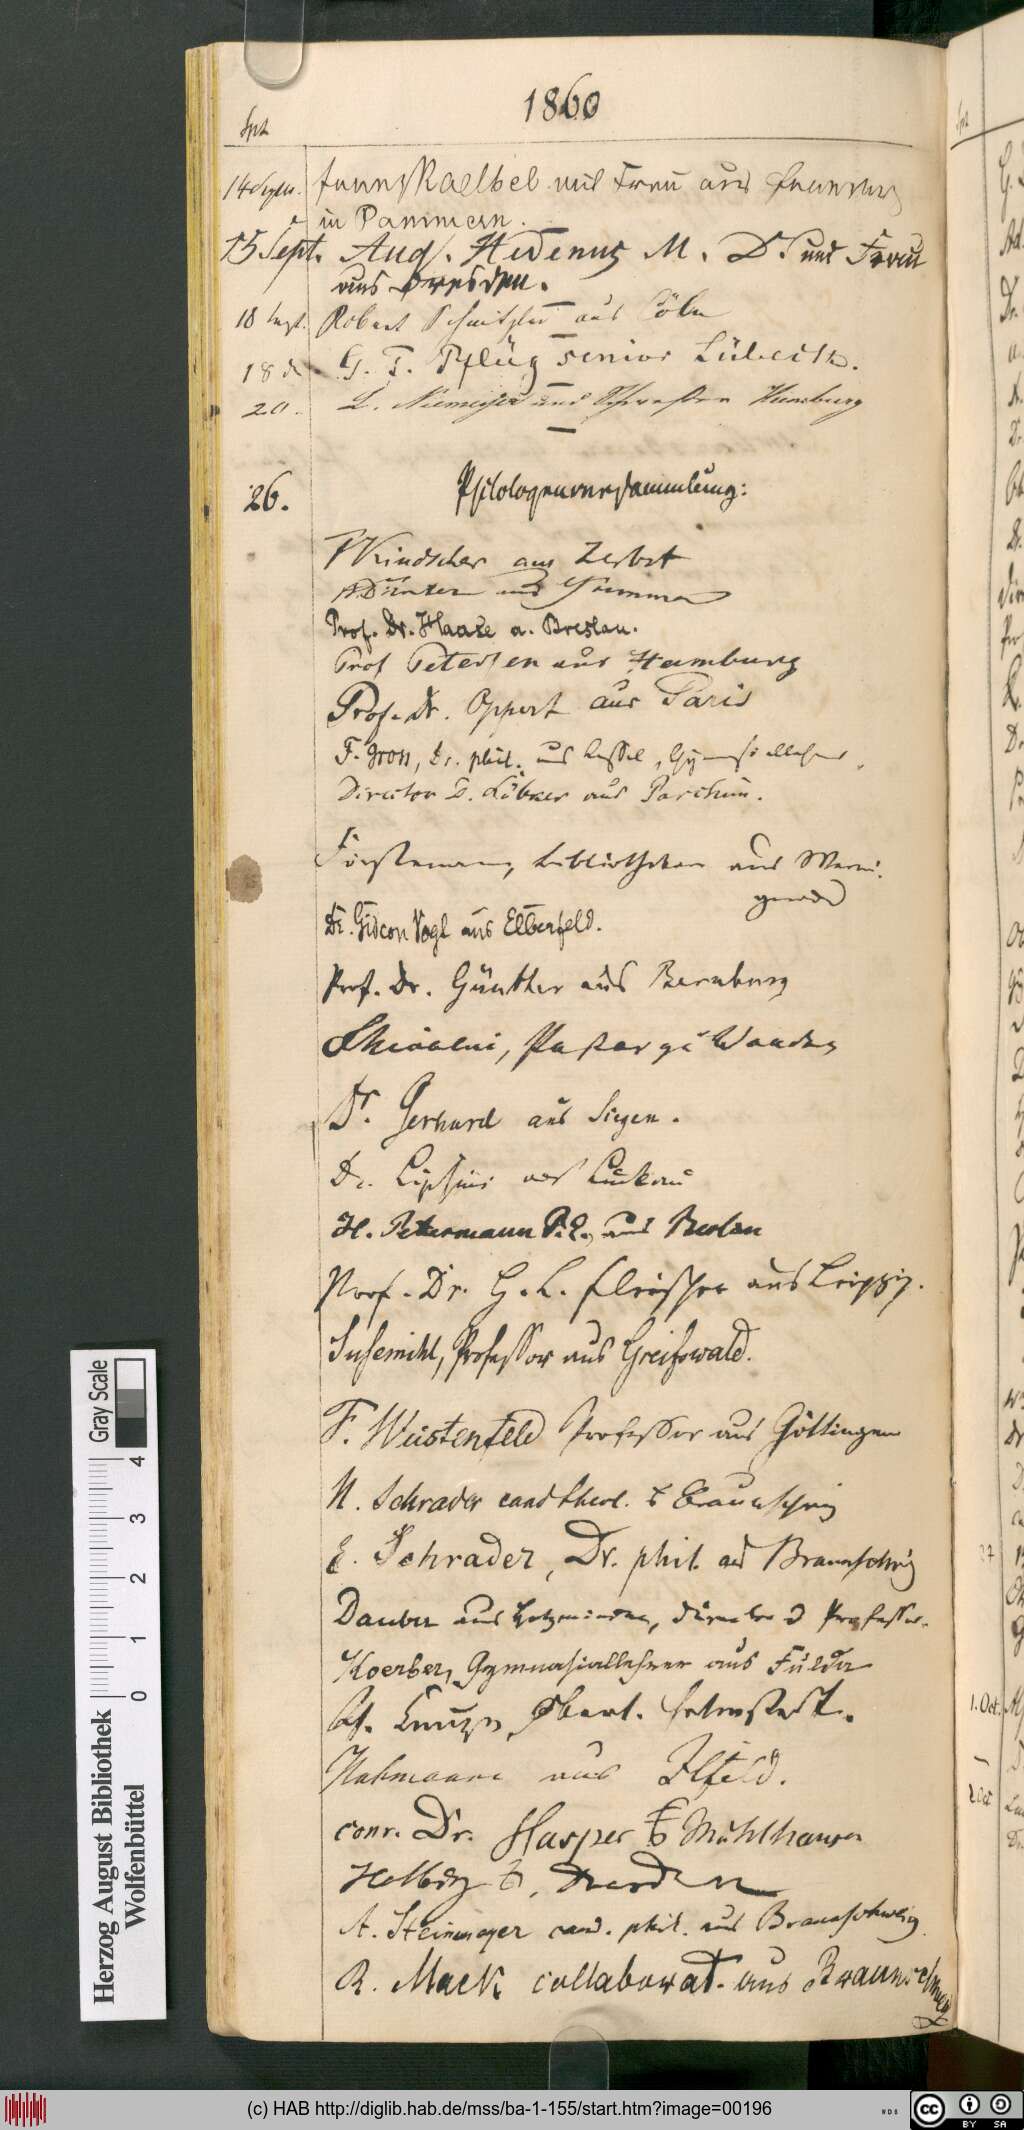 1860
Spt
14 Septr.
Kaelbel und Frau aus
in Pommern.
15 Sept. Aug. Hedenus M. Dr und Frau
aus Dresden.
18 Sept. Robert Schnitzler aus Cöln
18 do G. F. Pflüg senior Lübeck.
20. L. Niemeyer und Schwester Hamburg
26. Philologenversammlung:
Kindscher aus Zerbst
und
Prof. Dr. Haase a. Breslau.
Prof Petersen aus Hamburg
Prof. Dr. Oppert aus Paris
F. Gross, Dr. phil. aus Cassel, Gymnasiallehrer.
Director D. Lübker aus Parchim.
Förstemann, Bibliothekar aus Werni-
gerode
Dr. Gideon Vogt aus Elberfeld.
Prof. Dr. Günther aus Bernburg
Pastor zu
Dr. Gerhard aus Siegen.
Dr. Lipsius aus Luckau
H. Petermann P. E. aus Berlin
Prof. Dr. H. L. Fleischer aus Leipzig.
Susemihl, Professor aus Greifswald.
F. Wüstenfeld Professor aus Göttingen
N. Schrader cand theol. Braunschweig
E. Schrader, Dr. phil. aus Braunschweig
Dauber aus Holzminden, Director u Professor.
Koerber, Gymnasiallehrer aus Fulda
Helmstedt.
Hahmann aus Ilfeld.
conr. Dr. Hasper Mühlhausen
Helbig Dresden
A. Steinmeyer cand. phil. aus Braunschweig.
R. Mack collaborat. aus Braunschweig
Spt
27
1. Oct.
2 Oct
Gray Scale
0 1 2 3 4
Herzog August Bibliothek
Wolfenbüttel
(c) HAB http://diglib.hab.de/mss/ba-1-155/start.htm?image=00196
WDB
cc
BY SA